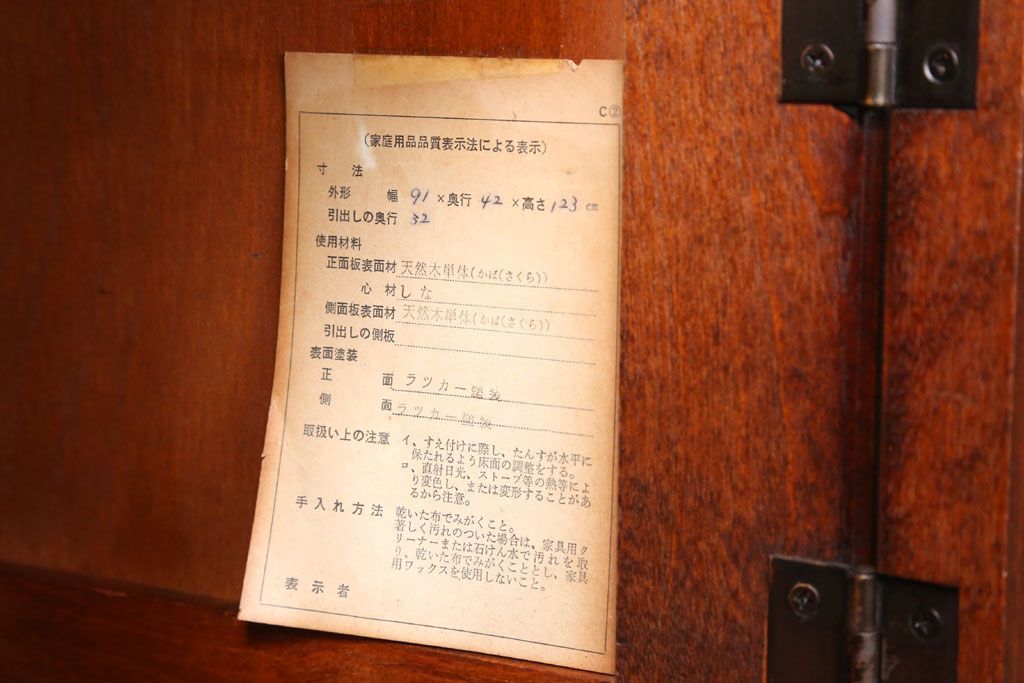 C②
(家庭用品品質表示法による表示)
寸法
外形 幅 91 ×奥行 42 ×高さ 123 cm
引出しの奥行 32
使用材料
正面板表面材 天然木単体(かば(さくら))
心材 しな
側面板表面材 天然木単体(かば(さくら))
引出しの側板
表面塗装
正面 ラツカー塗装
側面 ラツカー塗装
取扱い上の注意 イ、すえ付けに際し、たんすが水平に
保たれるよう床面の調整をする。
ロ、直射日光、ストーブ等の熱等によ
り変色し、または変形することがあ
るから注意。
手入れ方法 乾いた布でみがくこと。
著しく汚れのついた場合は、家具用ク
リーナーまたは石けん水で汚れを取
り、乾いた布でみがくこととし、家具
用ワックスを使用しないこと。
表示者